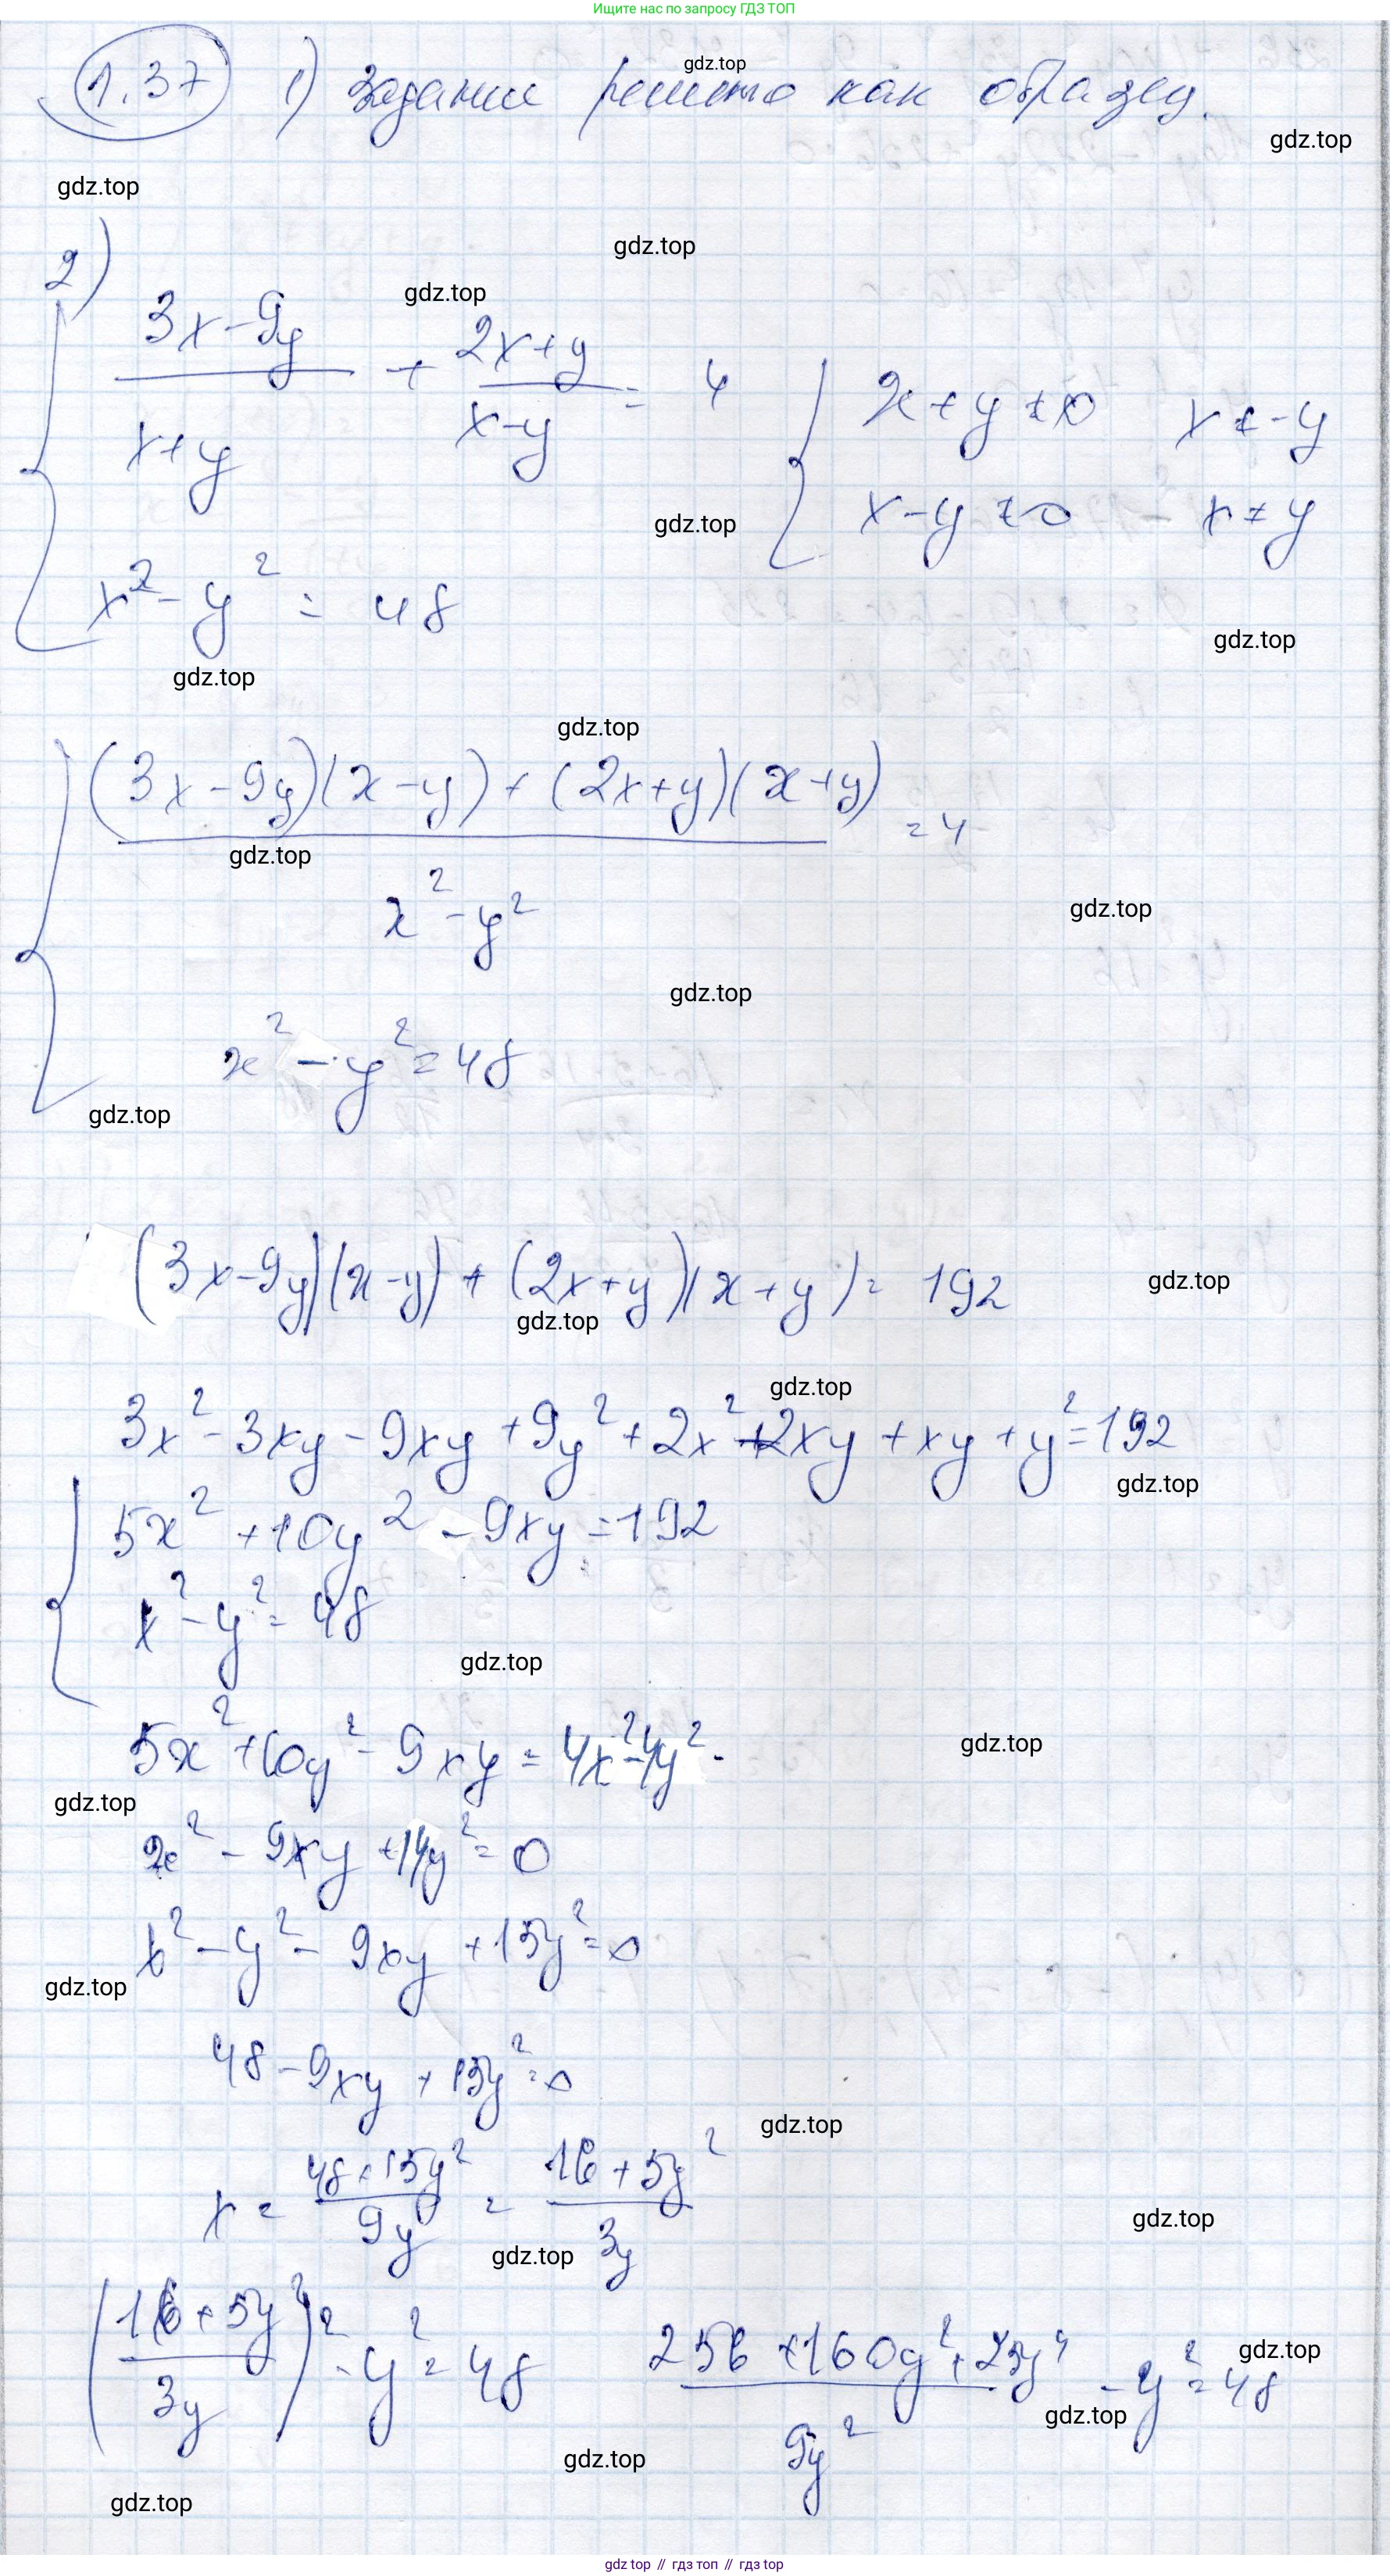 Ищите нас по запросу ГДЗ ТОП
1.37 1) Задание решено как образец.
gdz.top
gdz.top
gdz.top
2)
gdz.top
gdz.top
(3x-9y)/(x+y) + (2x+y)/(x-y) = 4 { x+y≠0 x≠-y
gdz.top
x-y≠0 - x≠y
x² - y² = 48
gdz.top
gdz.top
gdz.top
((3x-9y)(x-y)+(2x+y)(x+y))/(x²-y²) = 4
gdz.top
gdz.top
gdz.top
x² - y² = 48
gdz.top
(3x-9y)(x-y)+(2x+y)(x+y)= 192
gdz.top
gdz.top
gdz.top
3x²-3xy-9xy+9y²+2x²+2xy+xy+y²=192
gdz.top
{ 5x²+10y²-9xy=192
x²-y²=48
gdz.top
5x²+10y²-9xy=4x²-4y²
gdz.top
gdz.top
x²-9xy+14y²=0
x²-y²-9xy+15y²=0
gdz.top
48-9xy+15y²=0
gdz.top
x = (48+15y²)/(9y) = (16+5y²)/(3y)
gdz.top
gdz.top
((16+5y²)/(3y))² - y² = 48 (256+160y²+25y⁴)/(9y²) - y² = 48
gdz.top
gdz.top
gdz.top
gdz.top
gdz top // гдз топ // гдз top